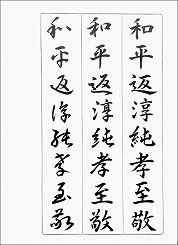 和平返淳純孝至敬
和平返淳純孝至敬
和平返淳純孝至敬